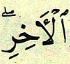 ٱلْأَخِرِۖ